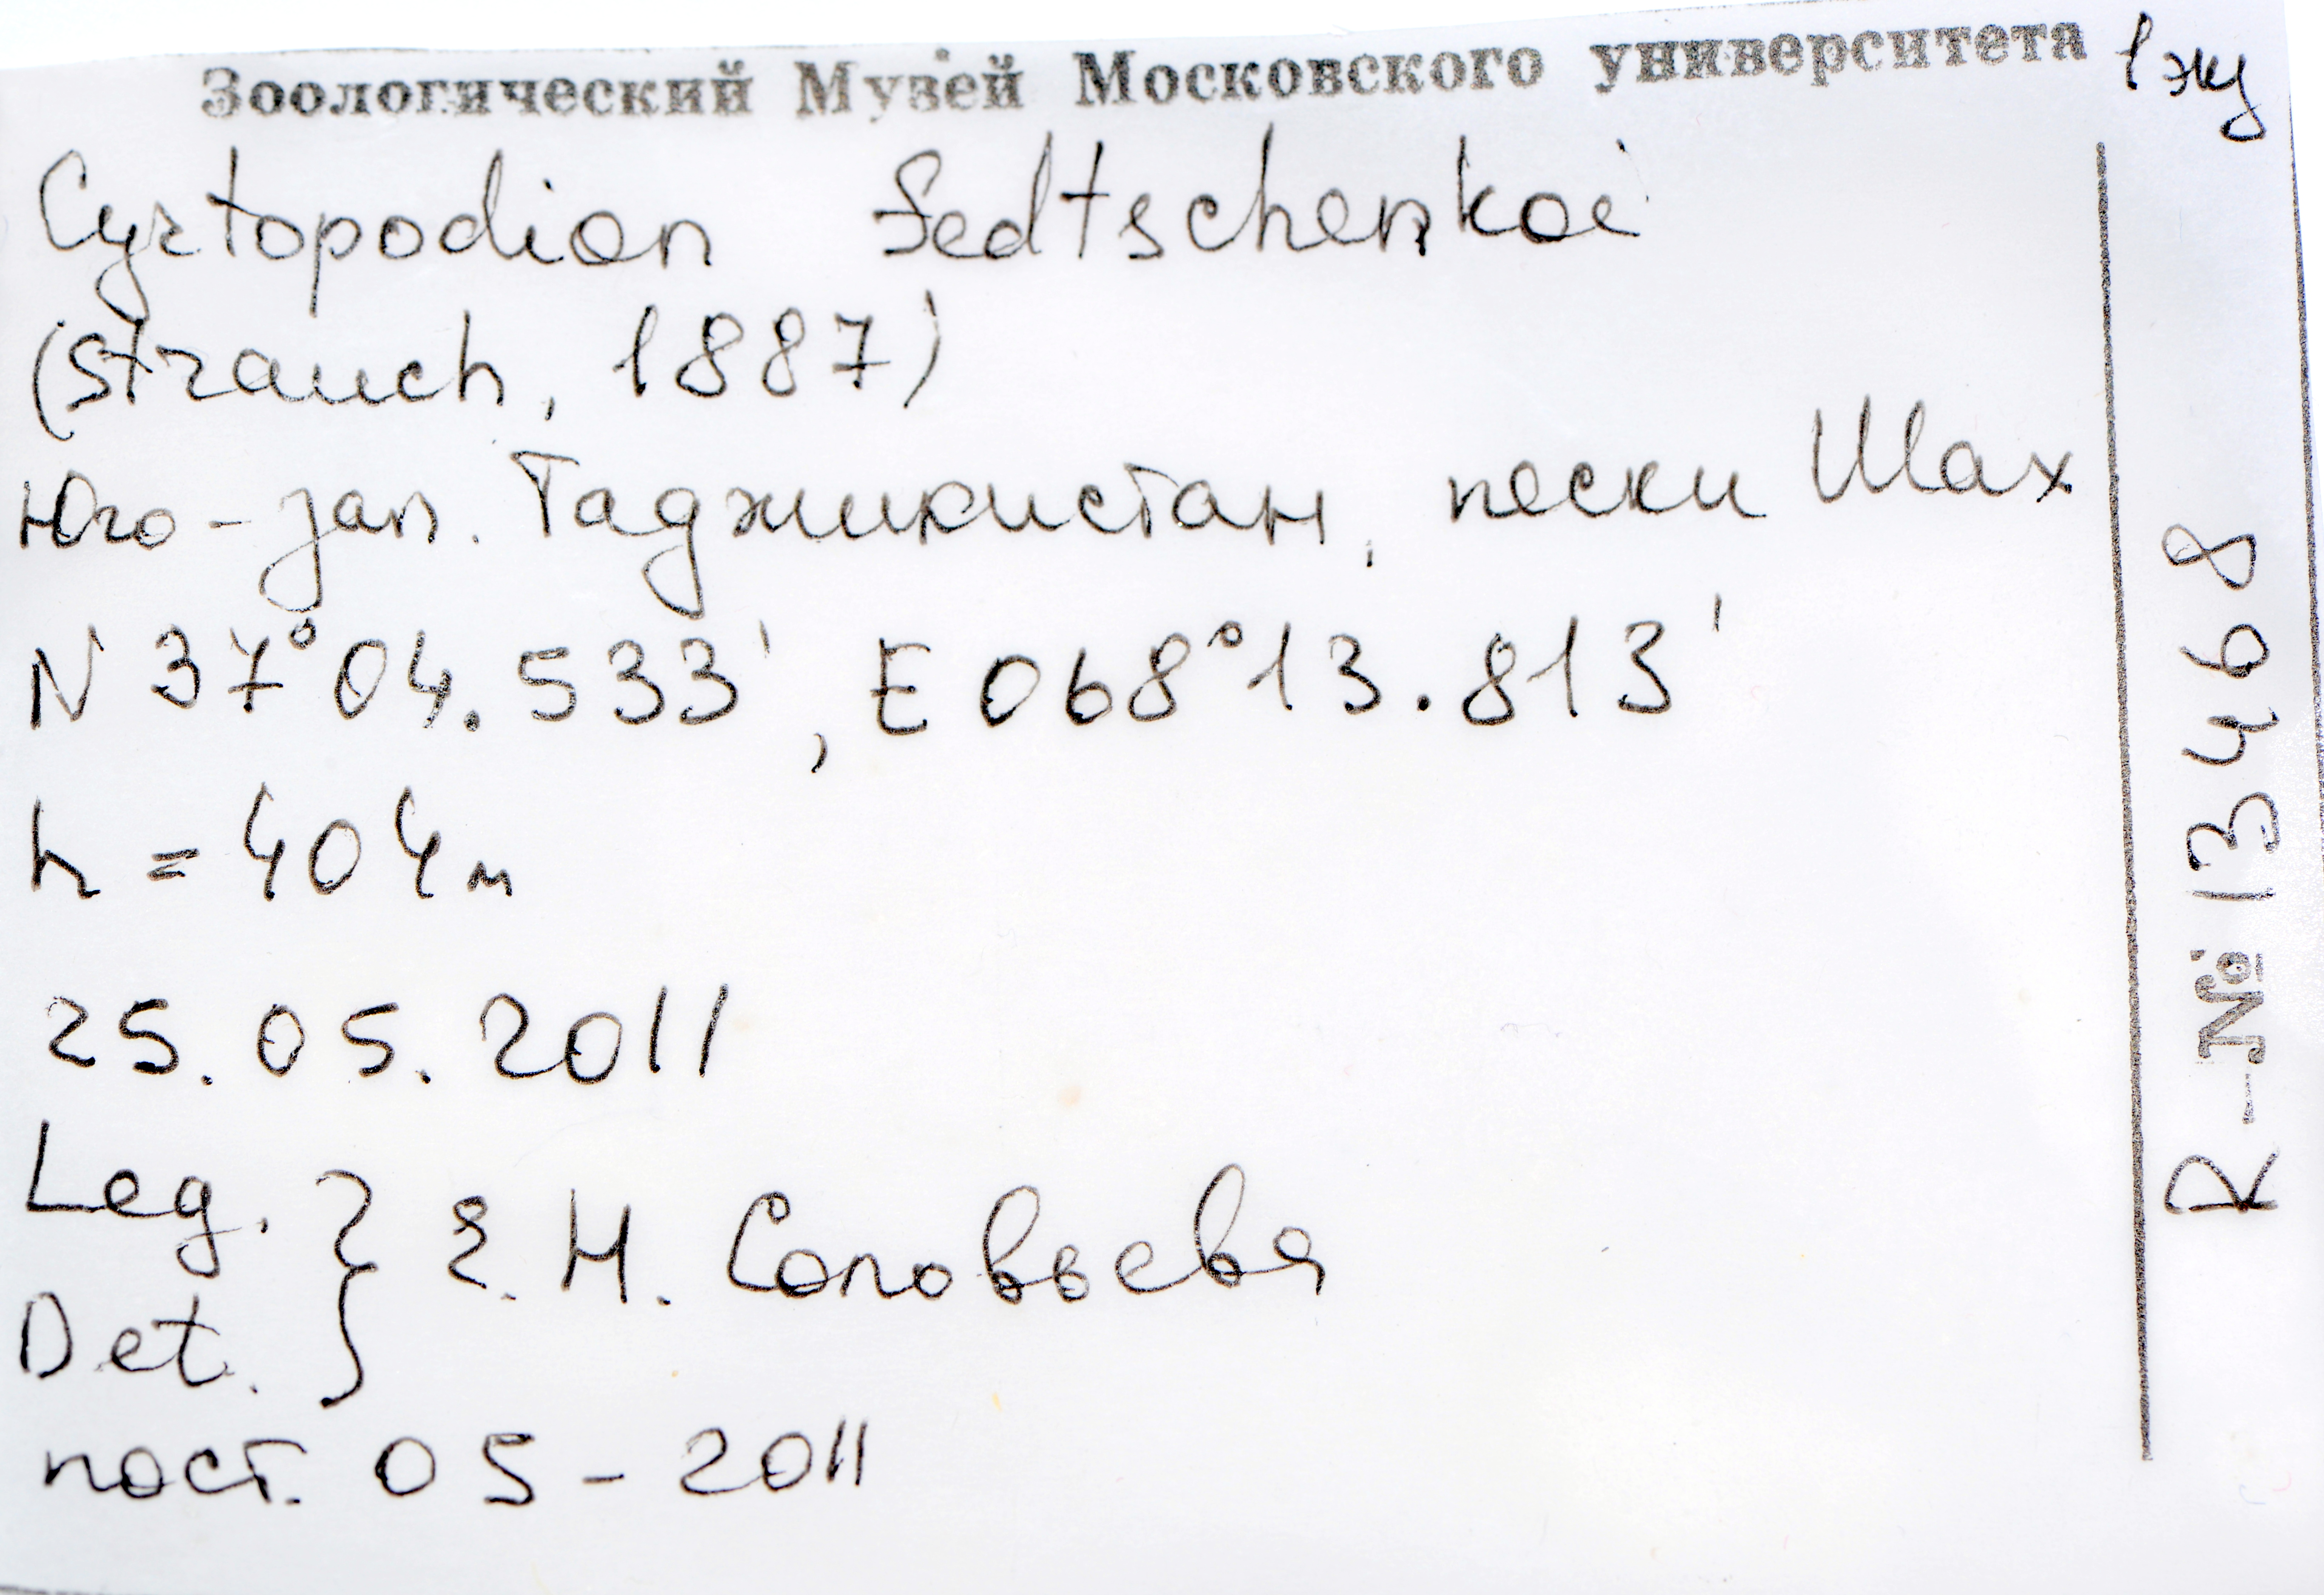 Зоологический Музей Московского университета
1 экз
Cyrtopodion fedtschenkoi
(Strauch, 1887)
Юго-зап. Таджикистан, пески Шах
N 37°04.533', E 068°13.813'
h = 404 м
25.05.2011
Leg. } Е. Н. Соловьева
Det.
пост. 05-2011
R-№ 13468